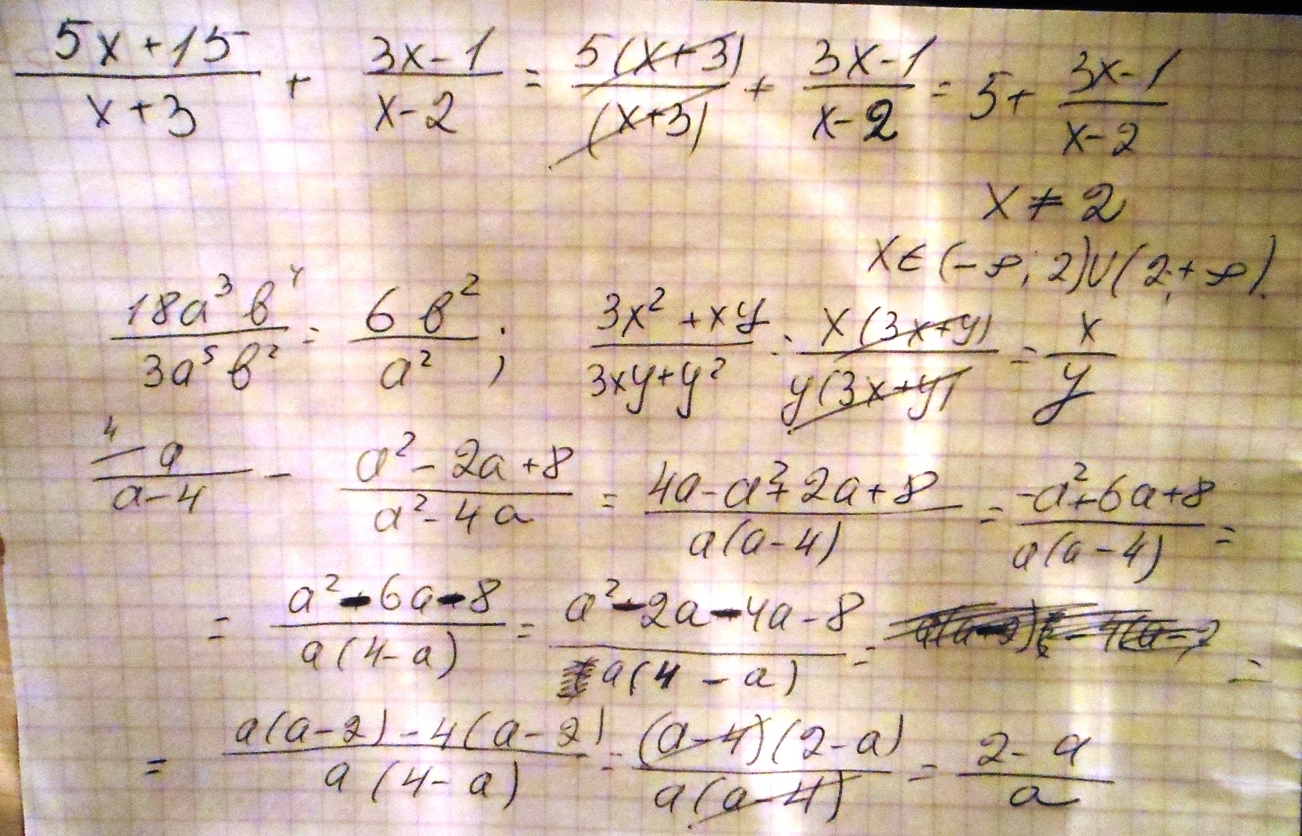 (5x+15)/(x+3) + (3x-1)/(x-2) = 5(x+3)/(x+3) + (3x-1)/(x-2) = 5+ (3x-1)/(x-2)
x ≠ 2
x∈(-∞; 2)∪(2;+∞).
18a³b⁴/3a⁵b² = 6b²/a² ; (3x²+xy)/(3xy+y²) = x(3x+y)/y(3x+y) = x/y
4 a/(a-4) - (a²-2a+8)/(a²-4a) = (4a-a²+2a+8)/a(a-4) = (-a²+6a+8)/a(a-4) =
= (a²-6a-8)/a(4-a) = (a²-2a-4a-8)/a(4-a) = =
= (a(a-2)-4(a-2))/a(4-a) = (a-4)(2-a)/a(a-4) = (2-a)/a